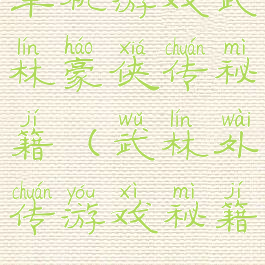 单机游戏武
lín háo xiá chuán mì
林豪侠传秘
jí wǔ lín wài
籍（武林外
chuán yóu xì mì jí
传游戏秘籍